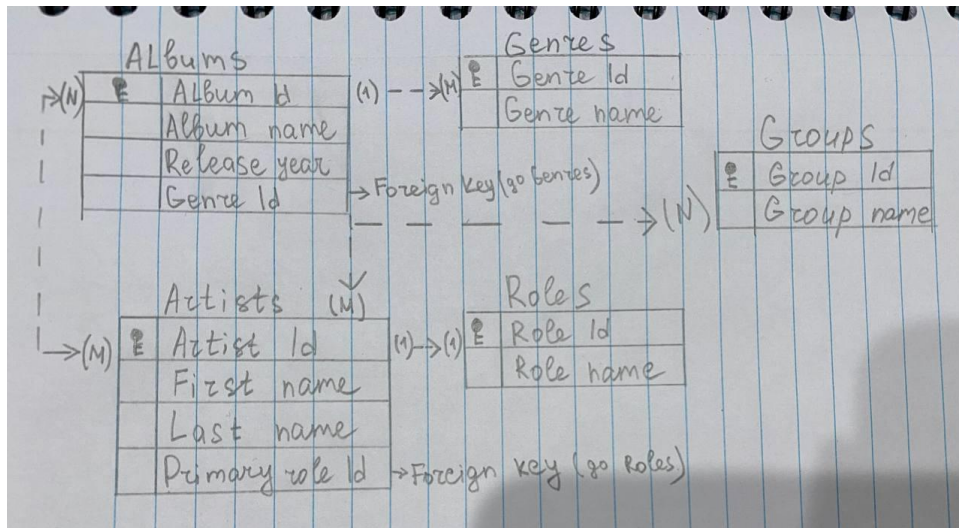 Albums
(N) Album Id (1) (M)
Album name
Release year
Genre Id Foreign key (go Genres)
Genres
Genre Id
Genre name
Groups
Group Id
Group name
(N)
Artists (M)
(M) Artist Id (1) (1)
First name
Last name
Primary role Id Foreign key (go Roles)
Roles
Role Id
Role name